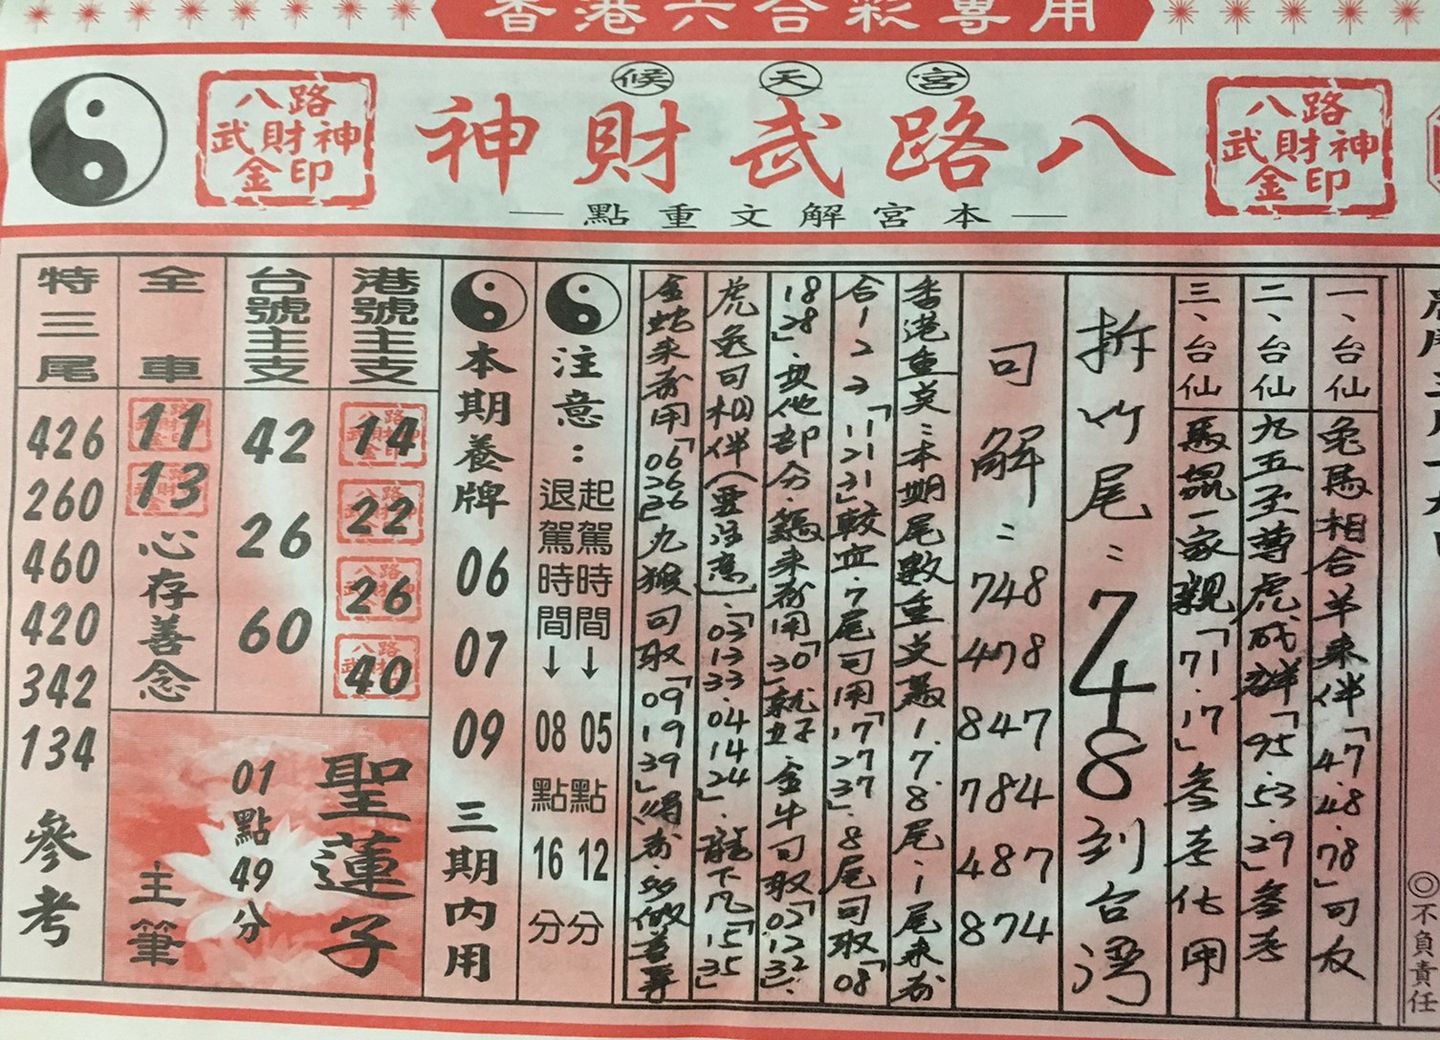 香港六合彩專用
候天宮
八路武財神
八路
武財神
金印
八路
武財神
金印
本宮解文重點
一、台仙
兔馬相合羊來伴「47.48.78」可友
二、台仙
九五至尊虎咸群「95.53.29」叁考
三、台仙
馬龍一家親「71.17」叁考化用
拆竹尾：748到台灣
司解：
748
478
847
784
487
874
香港重英：本期尾數重支為1.7.8尾.1尾來
合1221「11 21 31」較血.7尾司用「17 27 37」.8尾司取「08
18 28」.其他部分.雞來用「30」就好.金牛司取「03 12 32」.
虎兔司相伴(要注意).「03 13 33.04 14 24」.龍下凡「15 35」
金蛇來用「06 26 36」已九猴司取「09 19 39」
注意：
起駕時間↓05點12分
退駕時間↓08點16分
本期養牌
06
07
09
三期內用
港號主支
14
22
26
40
台號主支
42
26
60
全車
11
13
心存善念
特三尾
426
260
460
420
342
134
參考
聖蓮子
01點49分
主筆
◎不負責任